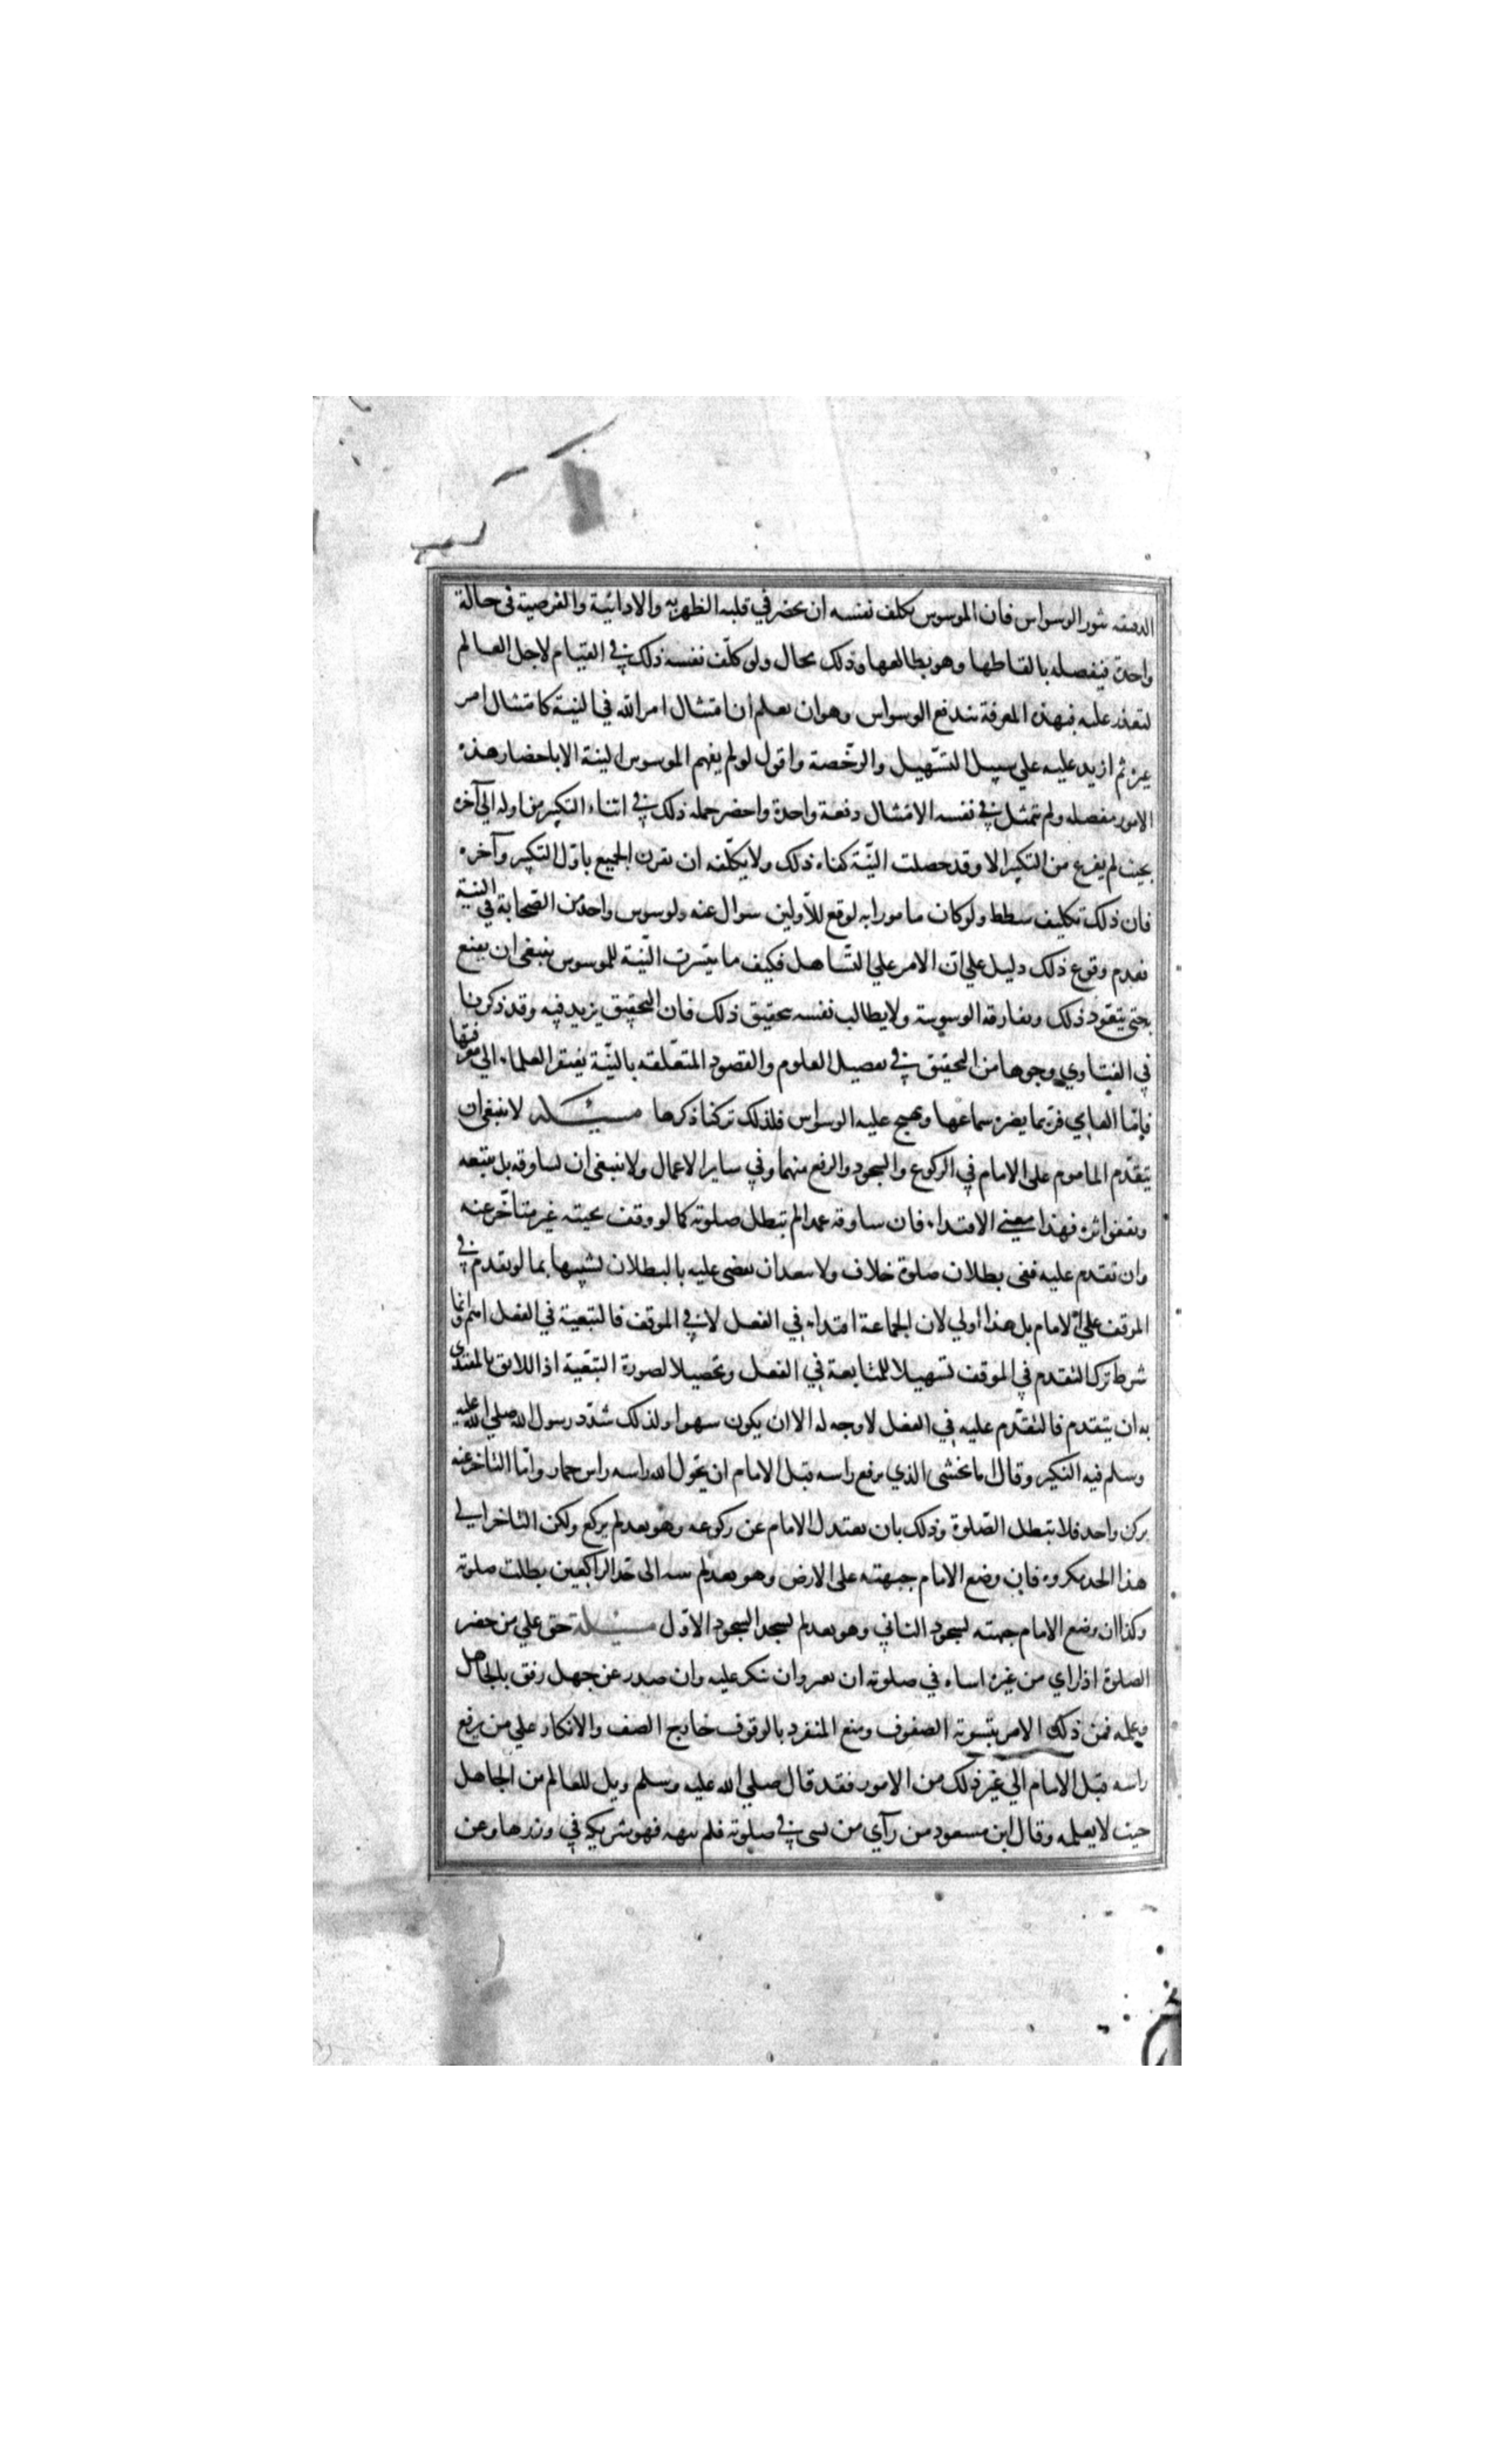 الدقيقة يثور الوسواس فان الموسوس يكلف نفسه ان يحضر في قلبه الظهرية والادائية والفرضية في حالة
واحدة فيفصله بالفاظها وهو يطالعها وذلك محال ولو كلف نفسه ذلك في القيام لاجل العالم
لتعذر عليه فبهذه المعرفة يندفع الوسواس وهو ان يعلم ان امتثال امر الله في النية كامتثال امر
غيره ثم ازيد عليه علي سبيل التسهيل والرخصة واقول لو لم يفهم الموسوس النية الا باحضار هذه
الامور مفصله ولم تمثل في نفسه الامتثال دفعة واحدة واحضر جمله ذلك في اثناء التكبير من اوله الي آخره
بحيث لم يفرغ من التكبير الا وقد حصلت النيّة كفاه ذلك ولا يكلّفه ان يقرن الجميع باوّل التكبير وآخره
فان ذلك تكليف شطط ولو كان مامورا به لوقع للأولين سوال عنه ولوسوس واحد من الصّحابة في النية
فعدم وقوع ذلك دليل علي انّ الامر علي التّساهل فكيف ما تيسرت النّية للموسوس ينبغي ان يقنع
بحتي يتعود ذلك وتفارقه الوسوسة ولا يطالب نفسه بتحقيق ذلك فان التحقيق يزيد فيه وقد ذكرنا
في الفتاوي وجوها من التحقيق في تفصيل العلوم والقصود المتعلقه بالنيّة يفتقر العلماء الي معرفتها
فامّا العامي فربما يضره سماعها ويهيج عليه الوسواس فلذلك تركنا ذكرها مسئلة لا ينبغي ان
يتقدّم الماموم على الامام في الركوع والسجود والرفع منهما وفي ساير الاعمال ولا ينبغي ان يساوقه بل يتبعه
ويقفوا اثره فهذا معني الاقتداء فان ساوقه عمدا لم تبطل صلوته كما لو وقف بجنبه غير متأخر عنه
وان تقدم عليه ففي بطلان صلوة خلاف ولا يبعد ان يقضي عليه بالبطلان تشبيها بما لو تقدم في
الموقف علي الامام بل هذا اولي لان الجماعة اقتداء في الفعل لا في الموقف فالتبعية في الفعل اهم وانما
شرط ترك التقدم في الموقف تسهيلا للمتابعة في الفعل وتحصيلا لصورة التبعية اذ اللايق بالمقتدي
به ان يتقدم فالتقدّم عليه في الفعل لا وجه له الا ان يكون سهوا ولذلك شدّد رسول الله صلي الله عليه
وسلم فيه النكير وقال اما يخشي الذي يرفع راسه قبل الامام ان يحول الله راسه راس حمار وامّا التاخر عنه
بركن واحد فلا تبطل الصّلوة وذلك بان يعتدل الامام عن ركوعه وهو بعد لم يركع ولكن التاخر الي
هذا الحد مكروه فان وضع الامام جبهته على الارض وهو بعد لم ينته الى حد الراكعين بطلت صلوته
وكذا ان وضع الامام جبهته لسجود الثاني وهو بعد لم يسجد السجود الاوّل مسئلة حق علي من حضر
الصلوة اذا راي من غيره اساءة في صلوته ان يغيره وان ينكر عليه وان صدر عن جهل رفق بالجاهل
ويعلمه فمن ذلك الامر بتسوية الصفوف ومنع المنفرد بالوقوف خارج الصف والانكار علي من يرفع
راسه قبل الامام الي غير ذلك من الامور فقد قال صلي الله عليه وسلم ويل للعالم من الجاهل
حيث لا يعلمه وقال ابن مسعود من رآي من يسى في صلوته فلم ينهه فهو شريكه في وزرها وعن